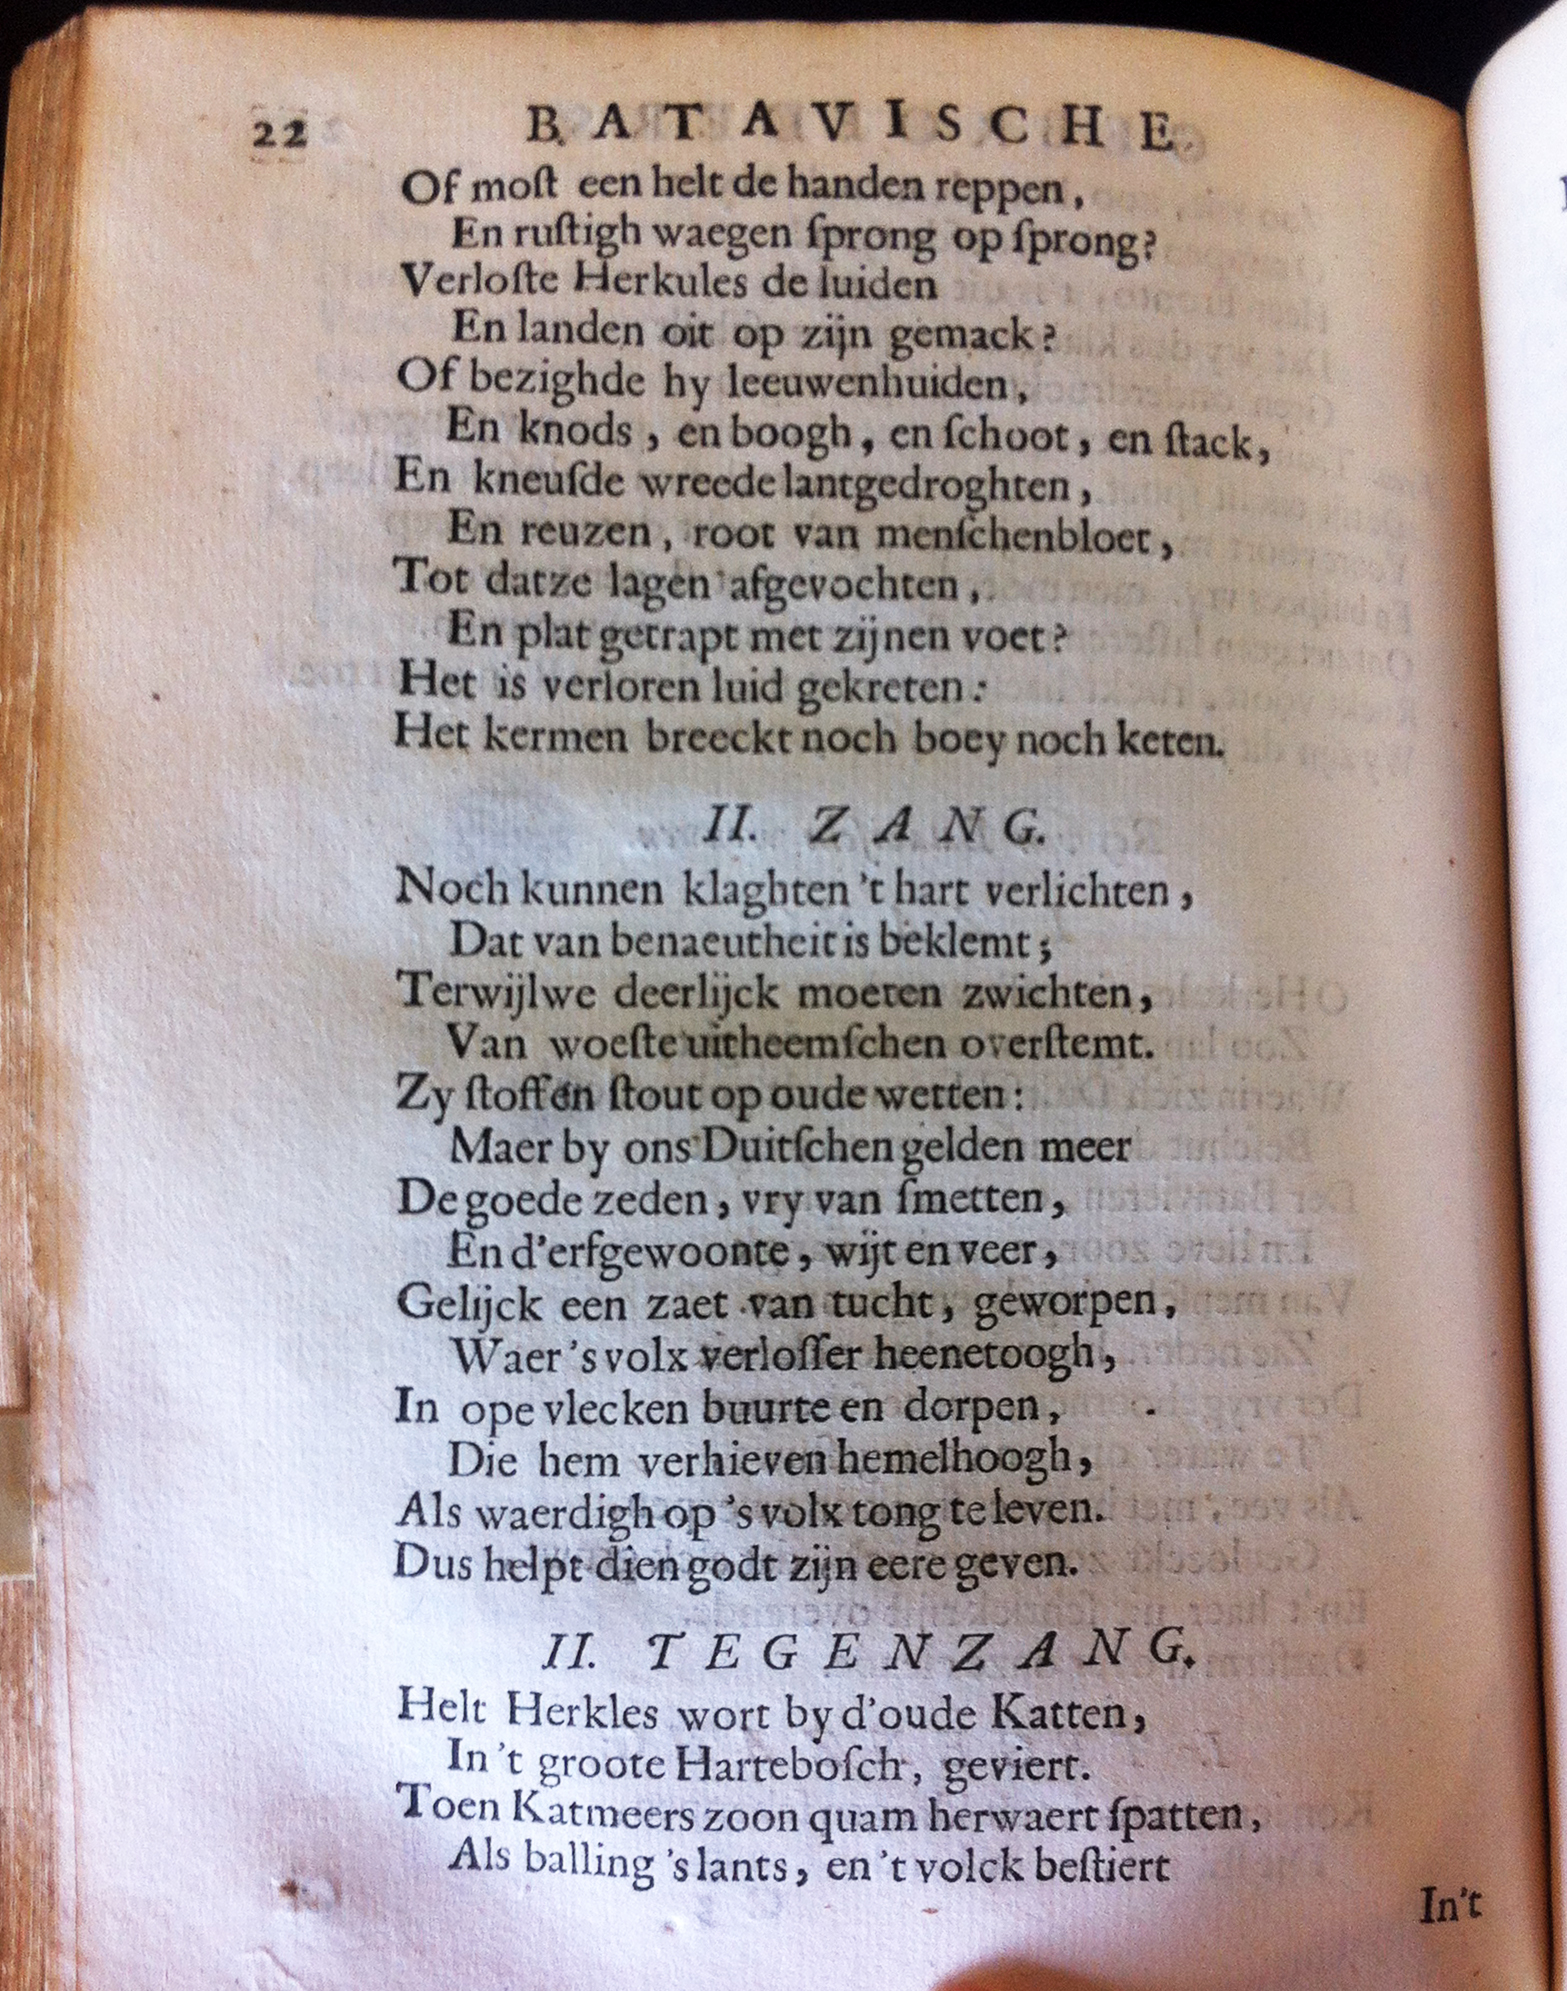 22 BATAVISCHE
Of moſt een helt de handen reppen,
En ruſtigh waegen ſprong op ſprong?
Verloſte Herkules de luiden
En landen oit op zijn gemack?
Of bezighde hy leeuwenhuiden,
En knods, en boogh, en ſchoot, en ſtack,
En kneuſde wreede lantgedroghten,
En reuzen, root van menſchenbloet,
Tot datze lagen afgevochten,
En plat getrapt met zijnen voet?
Het is verloren luid gekreten:
Het kermen breeckt noch boey noch keten.
II. ZANG.
Noch kunnen klaghten 't hart verlichten,
Dat van benaeutheit is beklemt;
Terwijl we deerlijck moeten zwichten,
Van woeſte uitheemſchen overſtemt.
Zy ſtoffen ſtout op oude wetten:
Maer by ons Duitſchen gelden meer
De goede zeden, vry van ſmetten,
En d'erfgewoonte, wijt en veer,
Gelijck een zaet van tucht, geworpen,
Waer 's volx verloſſer heenetoogh,
In ope vlecken buurte en dorpen,
Die hem verhieven hemelhoogh,
Als waerdigh op 's volx tong te leven.
Dus helpt dien godt zijn eere geven.
II. TEGENZANG.
Helt Herkles wort by d'oude Katten,
In 't groote Harteboſch, geviert.
Toen Katmeers zoon quam herwaert ſpatten,
Als balling 's lants, en 't volck beſtiert
In't